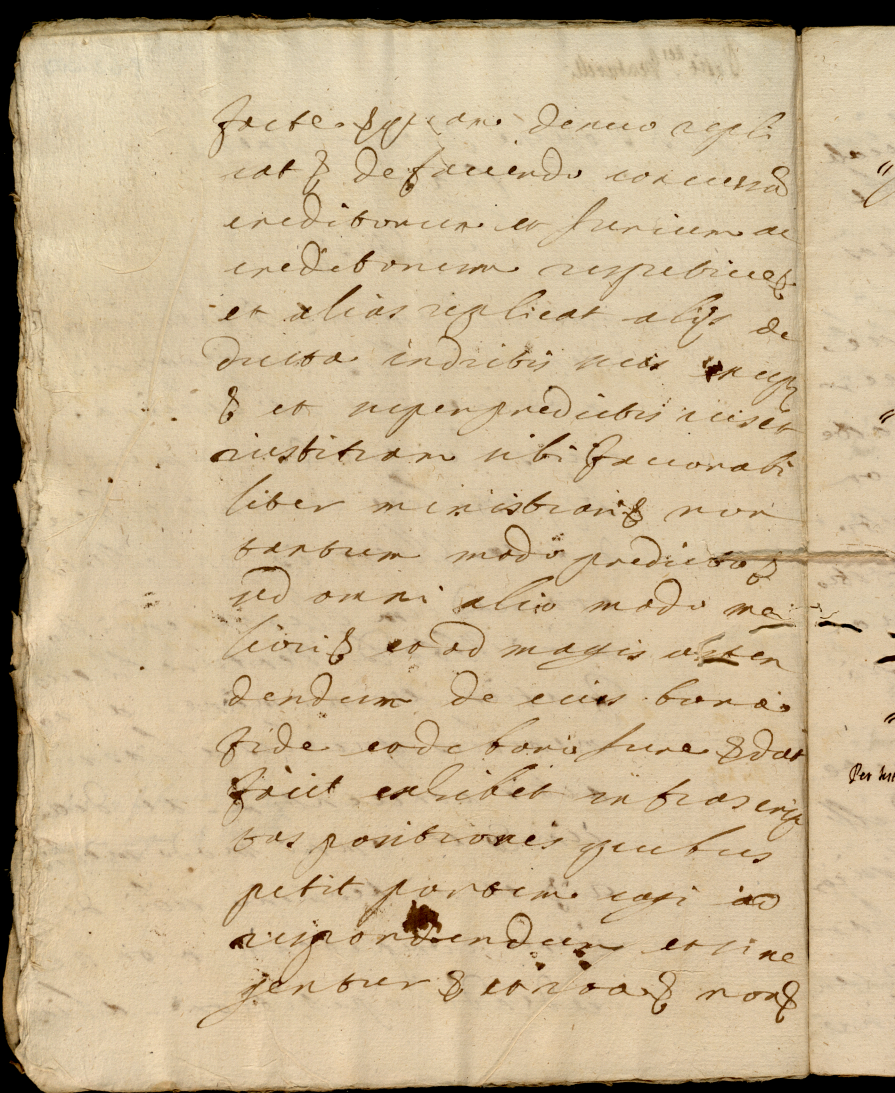 facto denuo repli
cat & de faciendo concursũ
creditorum et jurium ac
creditorum respetive &
et alias replicat alijs de
ducta indictis suis
& et super predictis ius et
iustitiam sibi favorabi
liter ministrari & non
tantum modo predicto &
sed omni alio modo me
liori & et ad magis osten
dendum de eius bona
fide et de bono jure & dat
facit exhibet infrascrip
tas positiones quibus
petit partem cogi ad
respondendum et si ne
gentur & & non &